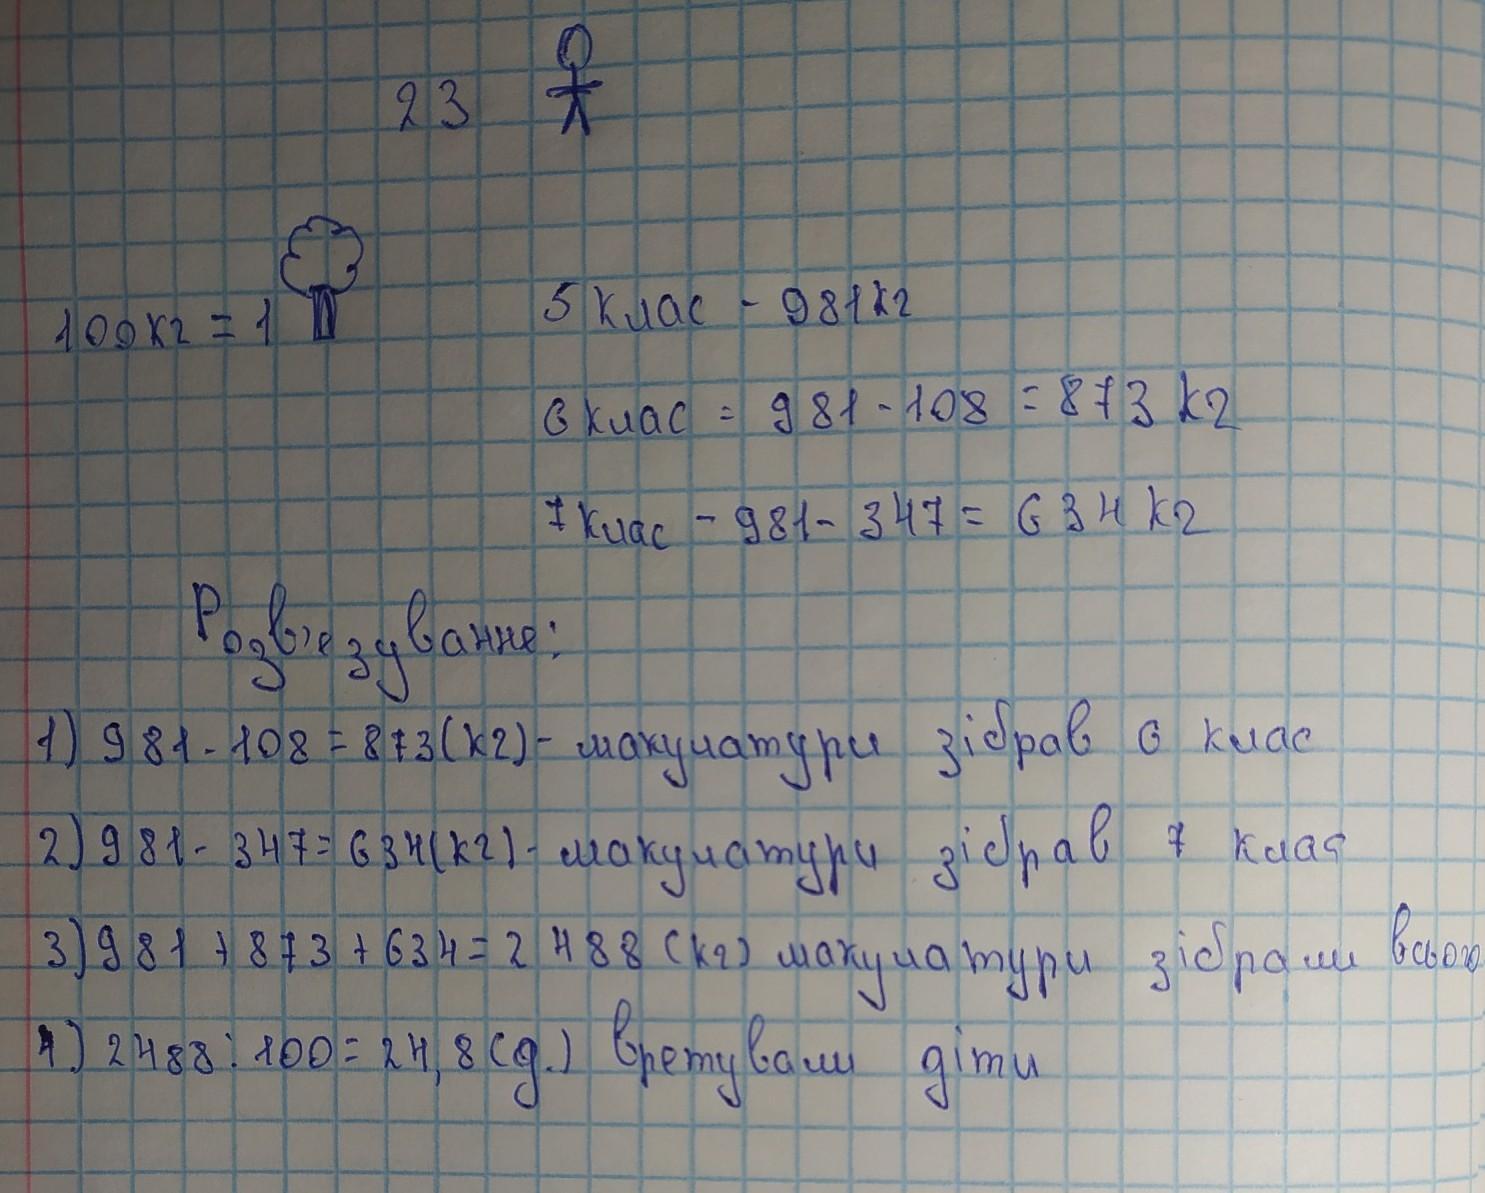 23
100кг = 1
5 клас - 981кг
6 клас = 981 - 108 = 873 кг
7 клас - 981 - 347 = 634 кг
Розв'язування:
1) 981 - 108 = 873 (кг) - макулатури зібрав 6 клас
2) 981 - 347 = 634 (кг) - макулатури зібрав 7 клас
3) 981 + 873 + 634 = 2488 (кг) макулатури зібрали всього
4) 2488 : 100 = 24,8 (д.) врятували діти